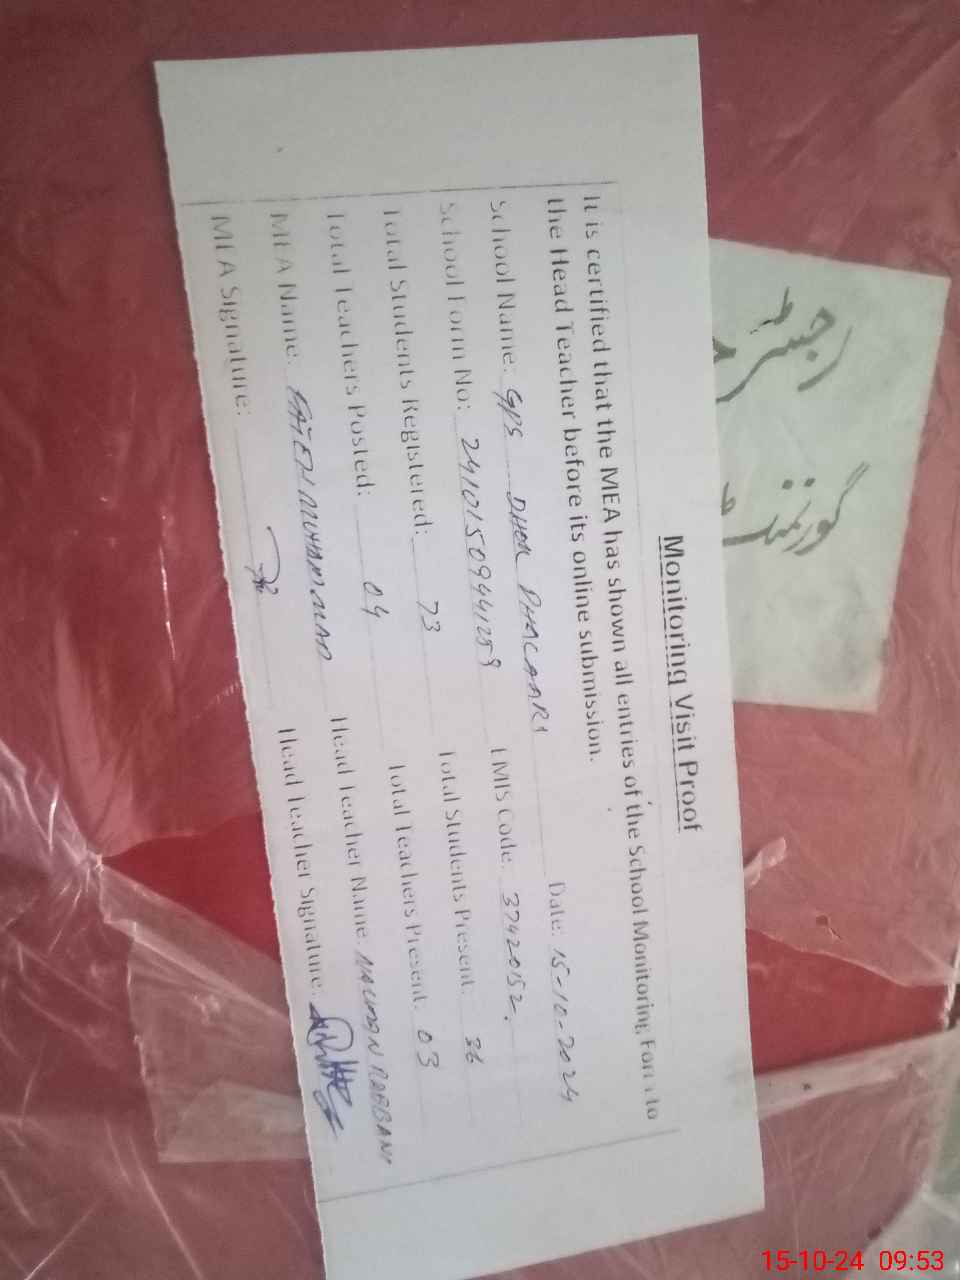 Monitoring Visit Proof
It is certified that the MEA has shown all entries of the School Monitoring Form to
the Head Teacher before its online submission.
School Name: GPS DHOK Date: 15-10-2024
School Form No: EMIS Code: 37420152.
Total Students Registered: 73 Total Students Present: 36
Total Teachers Posted: 04 Total Teachers Present: 03
MEA Name: FATEH MUHAMMAD Head Teacher Name: RABBANI
MEA Signature: Head Teacher Signature:
رجسٹر
گورنمنٹ
15-10-24 09:53